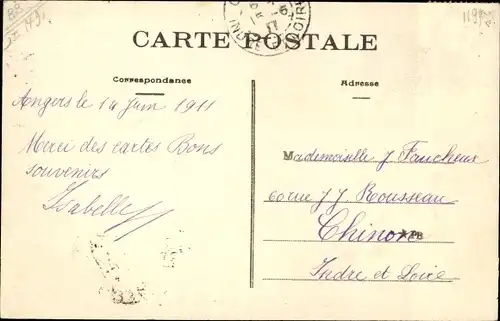 CARTE POSTALE
Correspondance
Adresse
Angers le 14 Juin 1911
Merci des cartes Bons
souvenirs
Isabelle
Mademoiselle J Faucheux
60 rue J J Rousseau
Chinon
Indre et Loire